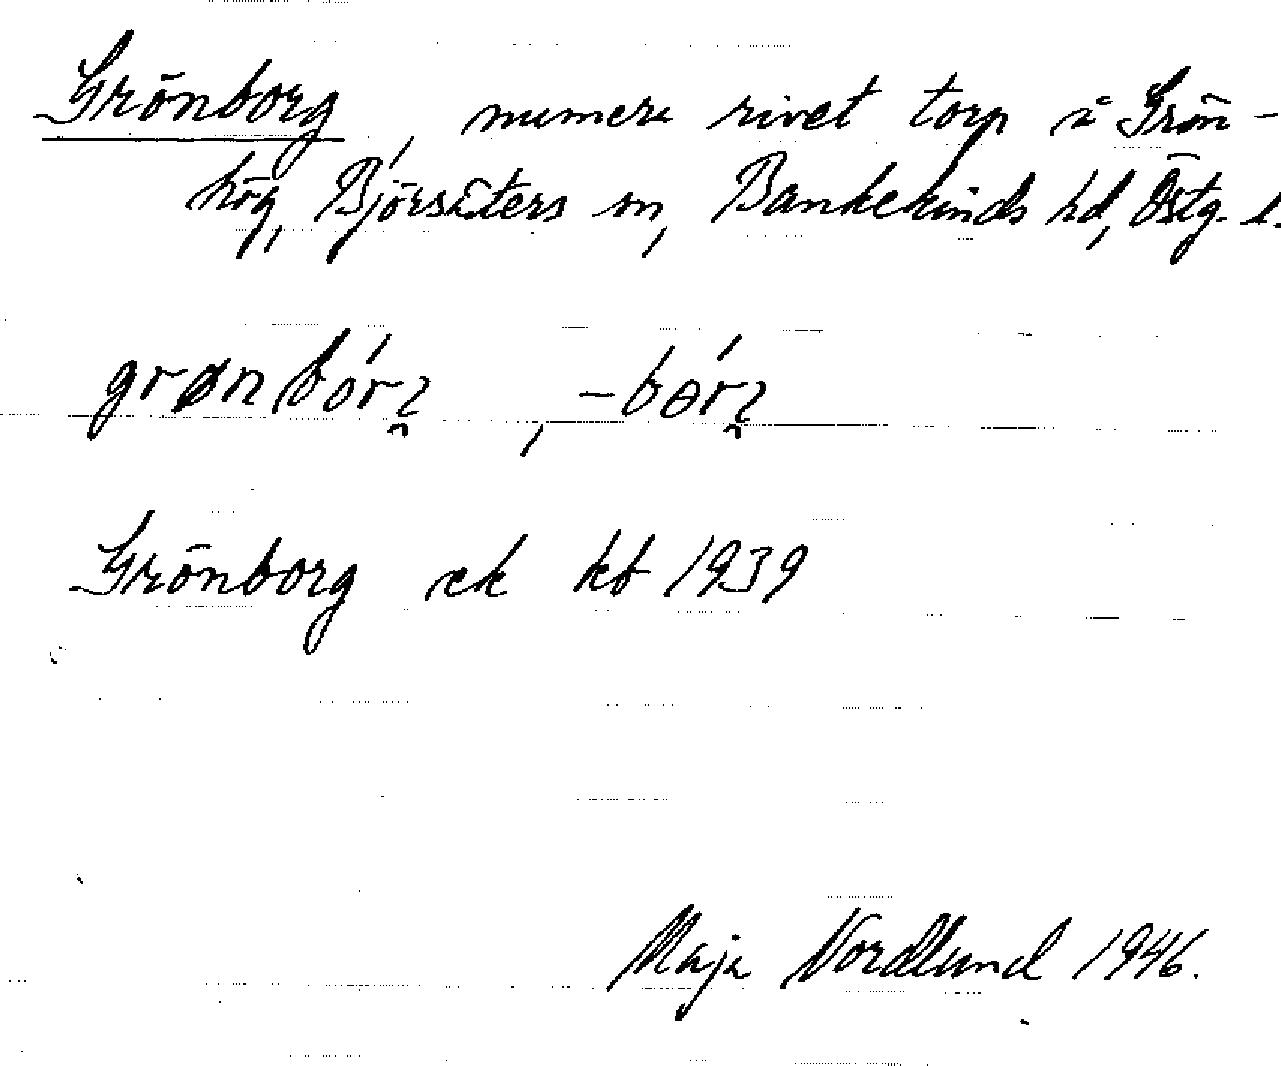 Grönborg, numera rivet torp å Grön-
hög, Björsäters sn, Bankekinds hd, Östg. l.
grønbórʒ, -bɵ́rʒ
Grönborg ek kb 1939
Maja Nordlund 1946.